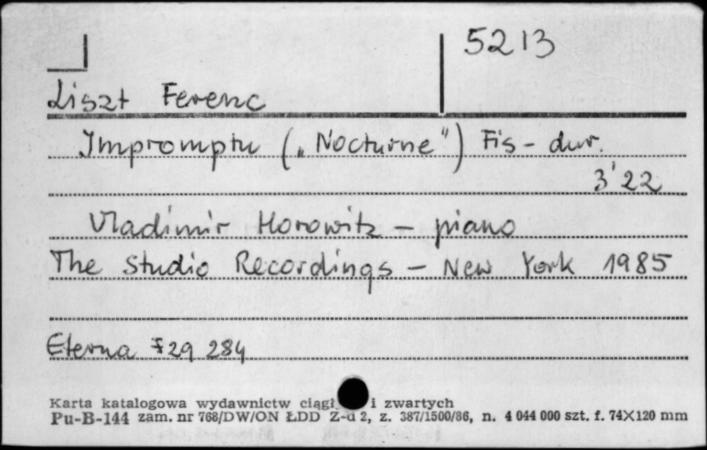 5213
Liszt Ferenc
Impromptu („Nocturne") Fis-dur.
3'22
Vladimir Horowitz – piano
The Studio Recordings – New York 1985
Eterna 729 284
Karta katalogowa wydawnictw ciągł i zwartych
Pu-B-144 zam. nr 768/DW/ON ŁDD Z-d 2, z. 387/1500/86, n. 4 044 000 szt. f. 74X120 mm